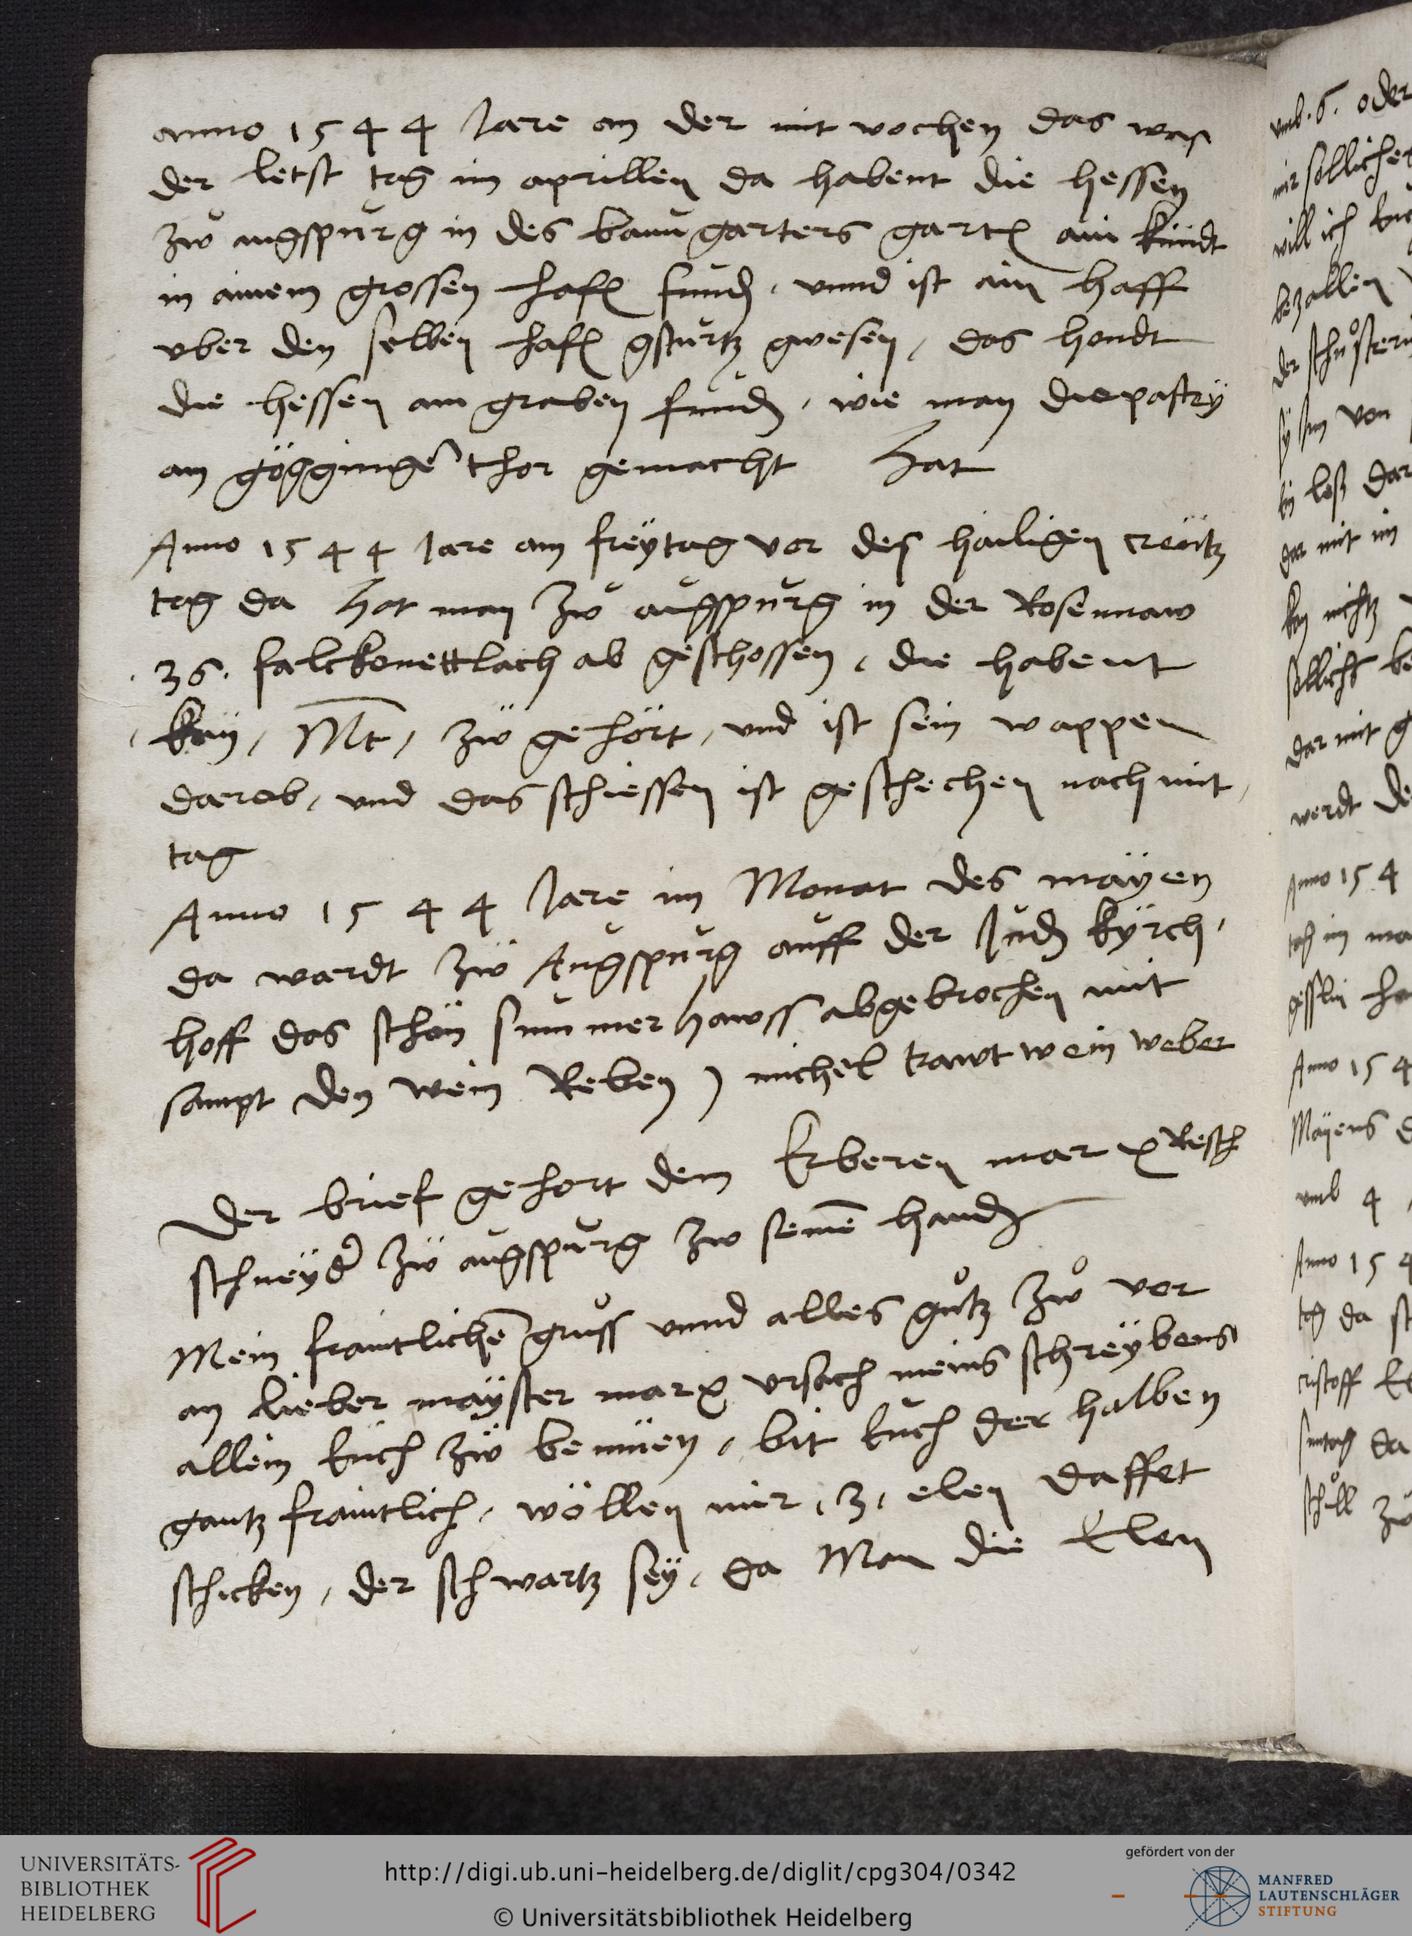 anno 1544 Jare an der mit wochen das was
der letst tag im aprillen da habent die hessen
zw augspurg in des baumgarters gart ain kindt
in ainem grossen hafn fund, unnd ist ain haff
vber den selben hafn gsturtz gwesen, das hondt
die hessen am graben fund, wie man die pastey
am gögginger thor gemacht hat
Anno 1544 Jare am freÿtag vor des hailigen creütz
tag da hat man zw augspurg in der Rosennaw
.36. falckonettlach ab geschossen, die habent
kay, Mt, zw gehört, und ist sein wappen
darob, und das schiessen ist geschechen nach mit,
tag
Anno 1544 Jare im Monat des mäÿen
da wardt zw Augspurg auff der Jud kÿrch,
hoff das schön summer hawss abgebrochen mit
sampt den wein Reben) michel trawtwein weber
Der brief gehort dem Erberen marx Resch
schneÿder zw augspurg zw seinen hand
Mein fraintlichen gruss unnd alles gůtz zů vor
an lieber maÿster marx vrsach meins schreÿbens
allein Euch zw bemüen, bit Euch der halben
gantz fraintlich, wöllen mir ,3, elen daffet
schicken, der schwartz seÿ, da Man die Elen
vmb .6. oder
mir sollicher
will ich
bezallen
der
von
dar
dar mit im
nichtz
dar mit
werdt
Anno 154
tag im
Anno 154
Maÿens
vmb 4
Anno 154
tag da
cristoff
suntag da
zw
UNIVERSITÄTS-
BIBLIOTHEK
HEIDELBERG
http://digi.ub.uni-heidelberg.de/diglit/cpg304/0342
© Universitätsbibliothek Heidelberg
gefördert von der
MANFRED
LAUTENSCHLÄGER
STIFTUNG